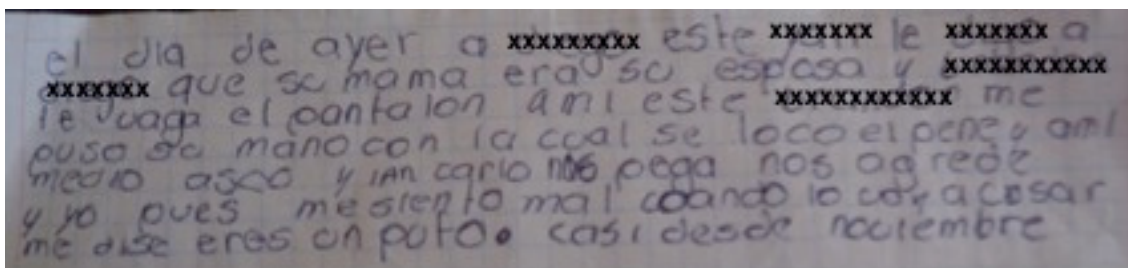 el dia de ayer a xxxxxxxxx este xxxxxxx le xxxxxxx a
xxxxxxx que su mama era su esposa y xxxxxxxxxxx
le vaga el pantalon ami este xxxxxxxxxxxx me
puso su mano con la cual se toco el pene y ami
medio asco y ian carlo nos pega nos agrede
y yo pues mesiento mal cuando lo voy acusar
me dise eres un puto. casi desde noviembre